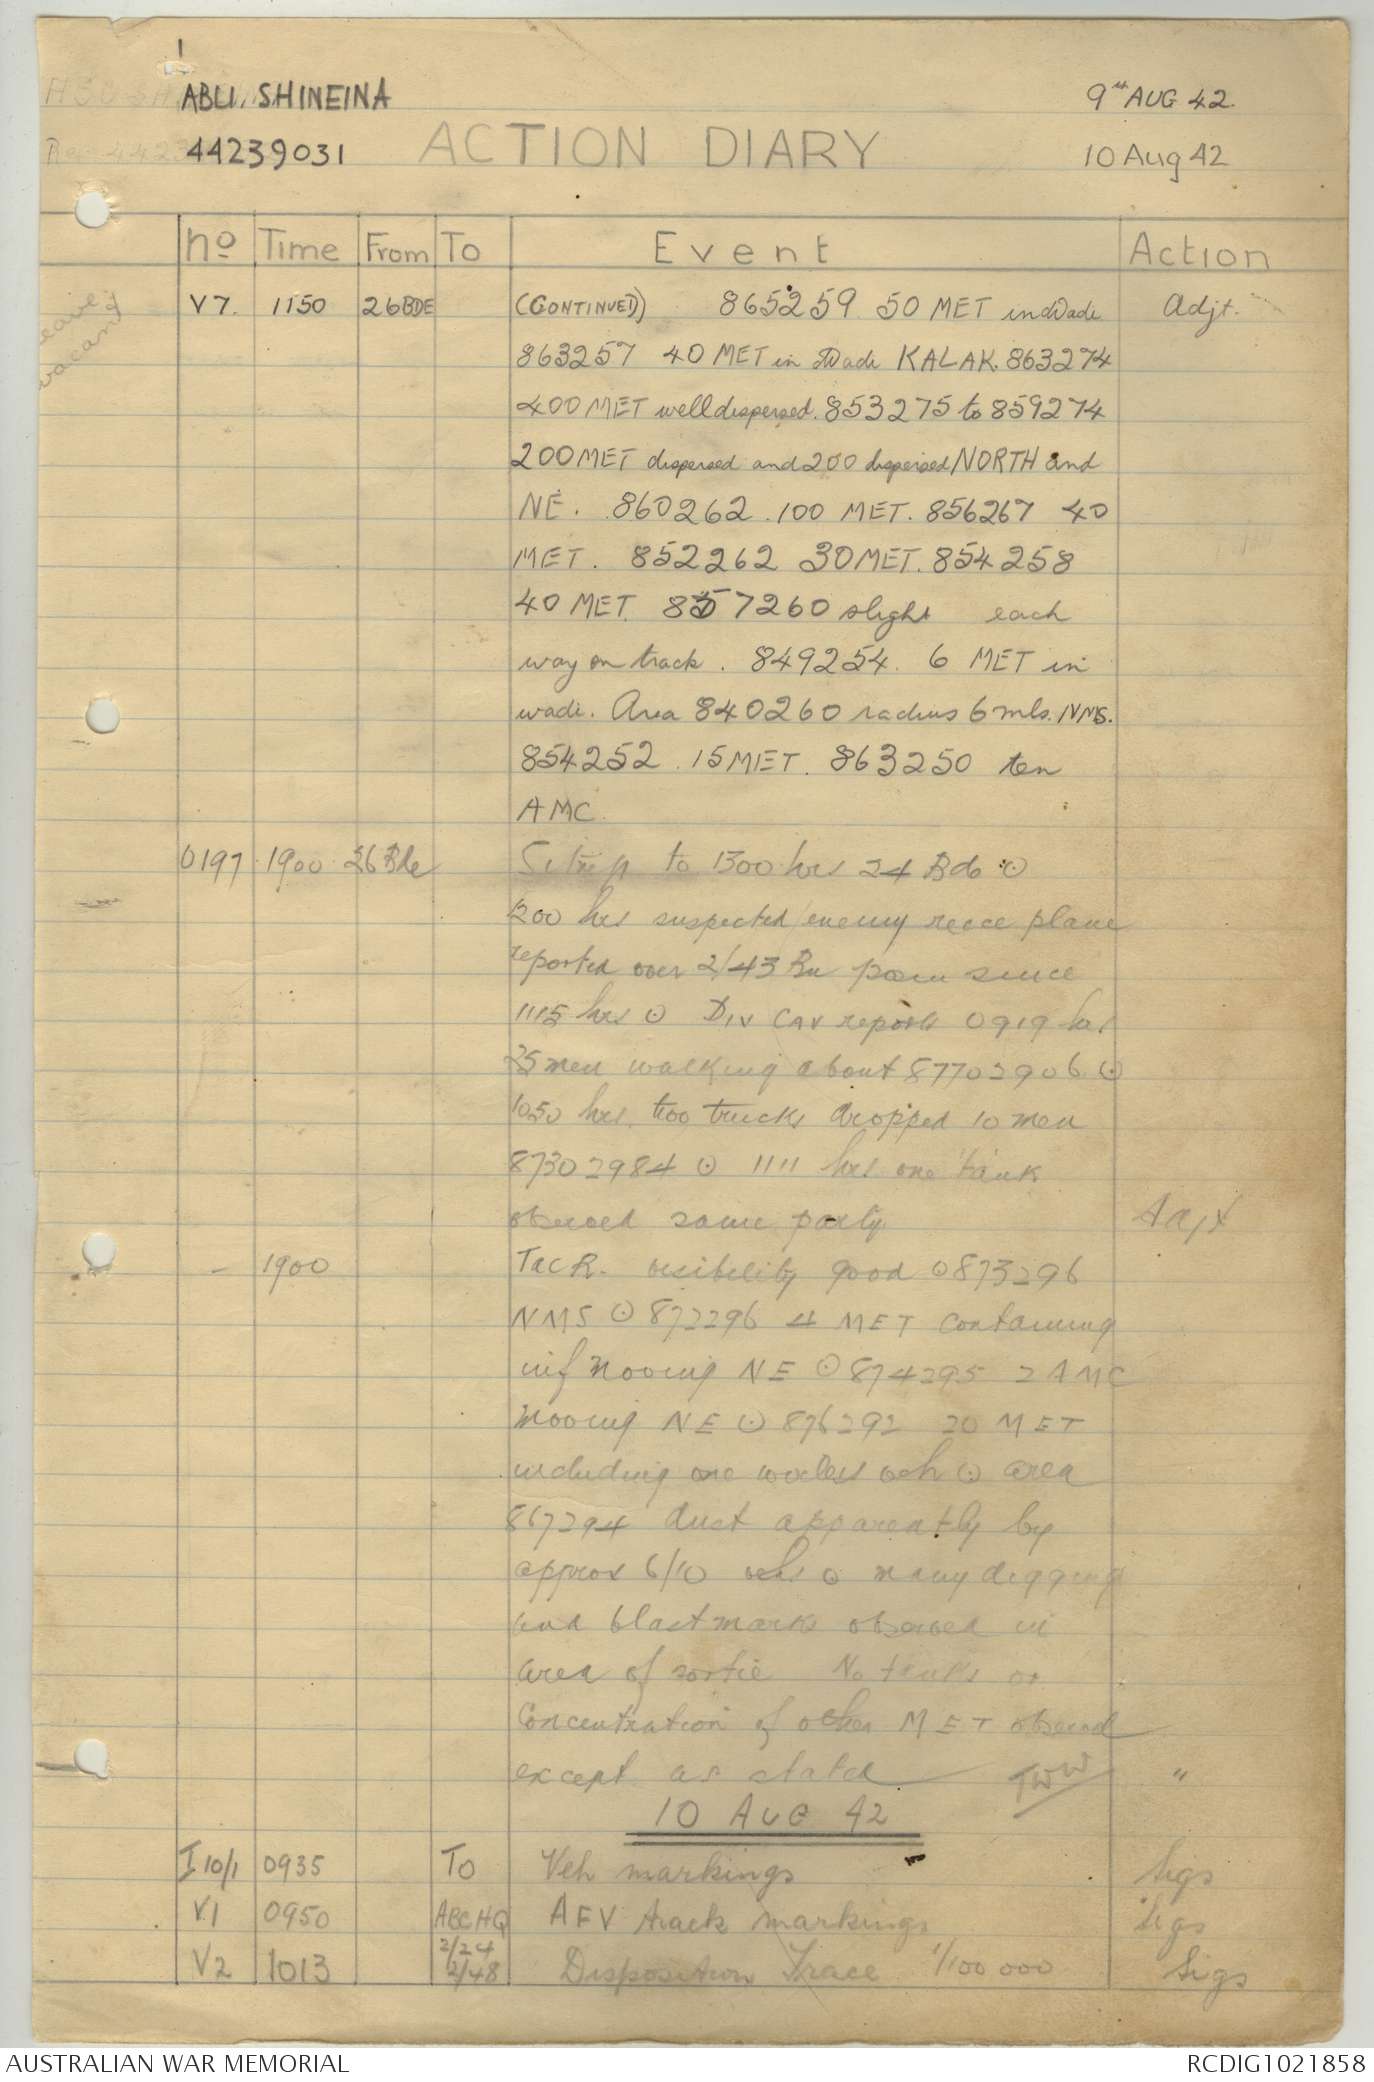 ABU. SHINEINA
9th AUG 42.
44239031
ACTION DIARY
10 Aug 42
No Time From To Event Action
V7. 1150 26BDE (CONTINUED) 865259 50 MET in Wadi Adjt.
863257 40 MET in Wadi KALAK. 863274
400 MET well dispersed. 853275 to 859274
200 MET dispersed and 200 dispersed NORTH and
NE. 860262. 100 MET. 856267 40
MET. 852262 30 MET. 854258
40 MET. 857260 slight each
way on track. 849254. 6 MET in
wadi. Area 840260 radius 6 mls. NMS.
854252. 15 MET. 863250 ten
AMC.
0197 1900 26 Bde Sitrep to 1300 hrs 24 Bde ⊙
1200 hrs suspected enemy recce plane
reported over 2/43 Bn posn since
1115 hrs ⊙ DIV CAV reports 0919 hrs
25 men walking about 87702906 ⊙
1050 hrs. two trucks dropped 10 men
87302984 ⊙ 1111 hrs one tank
observed same party Adjt
- 1900 Tac R. visibility good ⊙ 873296
NMS ⊙ 872296 4 MET containing
inf moving NE ⊙ 874295 2 AMC
moving NE ⊙ 876292 20 MET
including one wireless veh ⊙ area
867294 dust apparently by
approx 6/10 vehs ⊙ many digging
and blast marks observed in
area of sortie No tanks or
concentration of other MET observed
except as stated TWW "
10 AUG 42
I 10/1 0935 To Veh markings Sigs
V1 0950 ABC HQ AFV track markings Sigs
V2 1013 2/24 2/48 Disposition Trace 1/100 000 Sigs
leave
vacant
AUSTRALIAN WAR MEMORIAL
RCDIG1021858